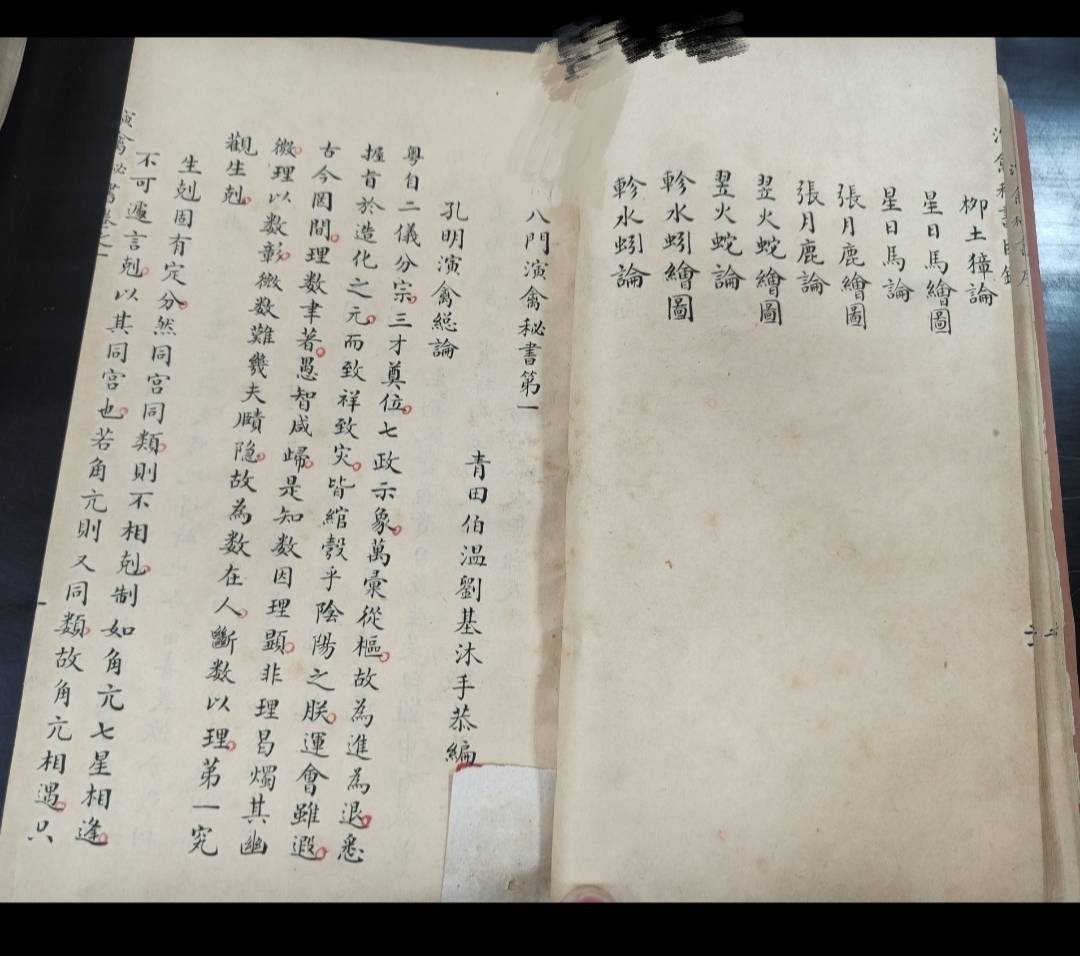 柳土獐論
星日馬繪圖
星日馬論
張月鹿繪圖
張月鹿論
翌火蛇繪圖
翌火蛇論
軫水蚓繪圖
軫水蚓論
八門演禽秘書第一
青田伯温劉基沐手恭編
孔明演禽總論
粤自二儀分宗三才奠位七政示象萬彙從樞故為進為退悉
握首於造化之元而致祥致灾皆綰轂乎陰陽之朕運會雖遐
古今罔間理数聿著愚智咸歸是知数因理顕非理曷燭其幽
微理以数彰微数難幾夫賾隐故為数在人斷数以理第一究
觀生剋
生剋固有定分然同宫同類則不相剋制如角亢七星相逢
不可遽言剋以其同宫也若角亢則又同類故角亢相遇只
演禽秘書卷之一